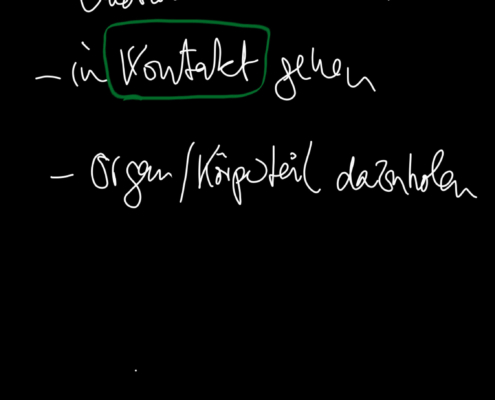 - in Kontakt gehen
- Organ/Körperteil dazuholen